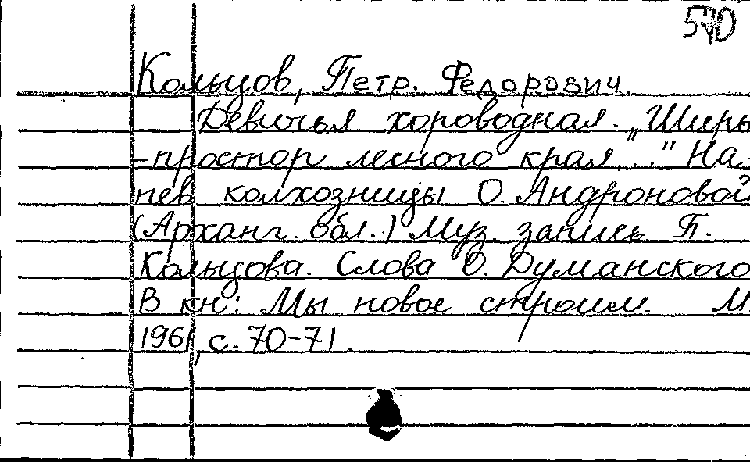 570
Кольцов, Петр. Федорович.
Девичья хороводная. „Ширь
-простор лесного края..." На-
пев колхозницы О. Андроновой
(Арханг. обл.) Муз. запись П.
Кольцова. Слова О. Думанского
В кн: Мы новое строим. М
1961, с. 70-71.